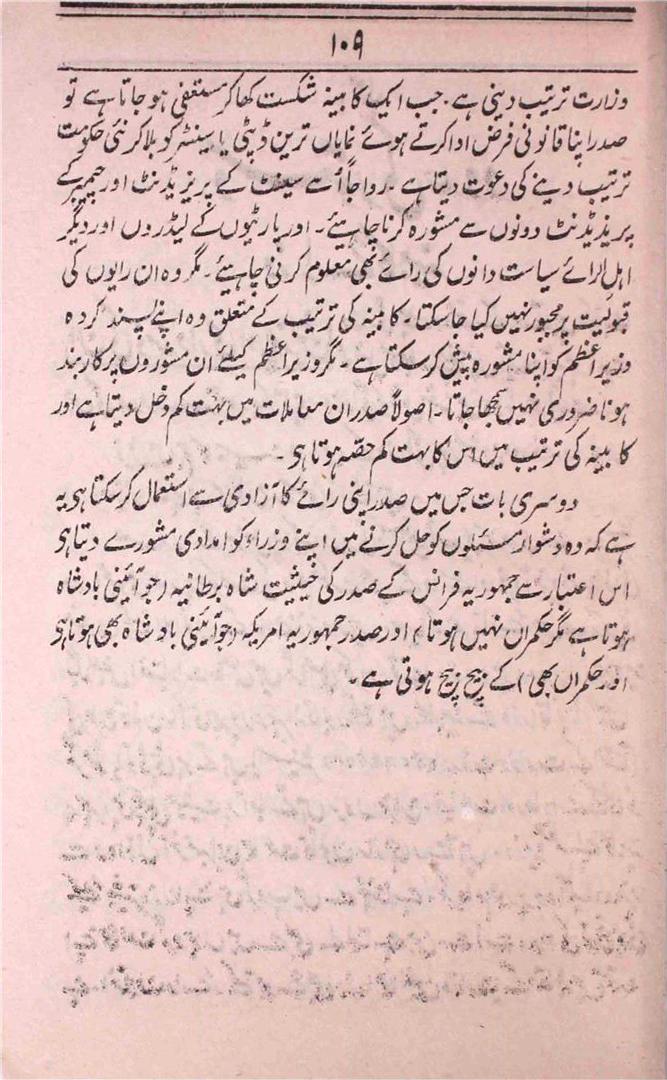 ۱۰۹
وزارت ترتیب دینی ہے۔ جب ایک کابینہ شکست کھا کر مستعفی ہو جاتا ہے تو
صدر اپنا قانونی فرض ادا کرتے ہوئے نمایاں ترین ڈپٹی یا سینٹر کو بلا کر نئی حکومت
ترتیب دینے کی دعوت دیتا ہے۔ رواجاً اُسے سینٹ کے پریزیڈنٹ اور چیمبر کے
پریذیڈنٹ دونوں سے مشورہ کرنا چاہیئے۔ اور پارٹیوں کے لیڈروں اور دیگر
اہل الرائے سیاست دانوں کی رائے بھی معلوم کرنی چاہیئے۔ مگر وہ ان رایوں کی
قبولیت پر مجبور نہیں کیا جا سکتا۔ کابینہ کی ترتیب کے متعلق وہ اپنے پسند کردہ
وزیر اعظم کو اپنا مشورہ پیش کر سکتا ہے۔ مگر وزیر اعظم کیلئے ان مشوروں پر کاربند
ہونا ضروری نہیں سمجھا جاتا۔ اصولاً صدر ان معاملات میں بہت کم دخل دیتا ہے اور
کابینہ کی ترتیب میں اس کا بہت کم حصّہ ہوتا ہی۔
دوسری بات جس میں صدر اپنی رائے کا آزادی سے استعمال کر سکتا ہی یہ
ہے کہ وہ دشوار مسئلوں کو حل کرنے میں اپنے وزراء کو امدادی مشورے دیتا ہی
اس اعتبار سے جمہوریہ فرانس کے صدر کی حیثیت شاہ برطانیہ (جو آئینی بادشاہ
ہوتا ہے مگر حکمراں نہیں ہوتا) اور صدر جمہوریہ امریکہ (جو آئینی بادشاہ بھی ہوتا ہی
اور حکمراں بھی) کے بیچ بیچ ہوتی ہے۔